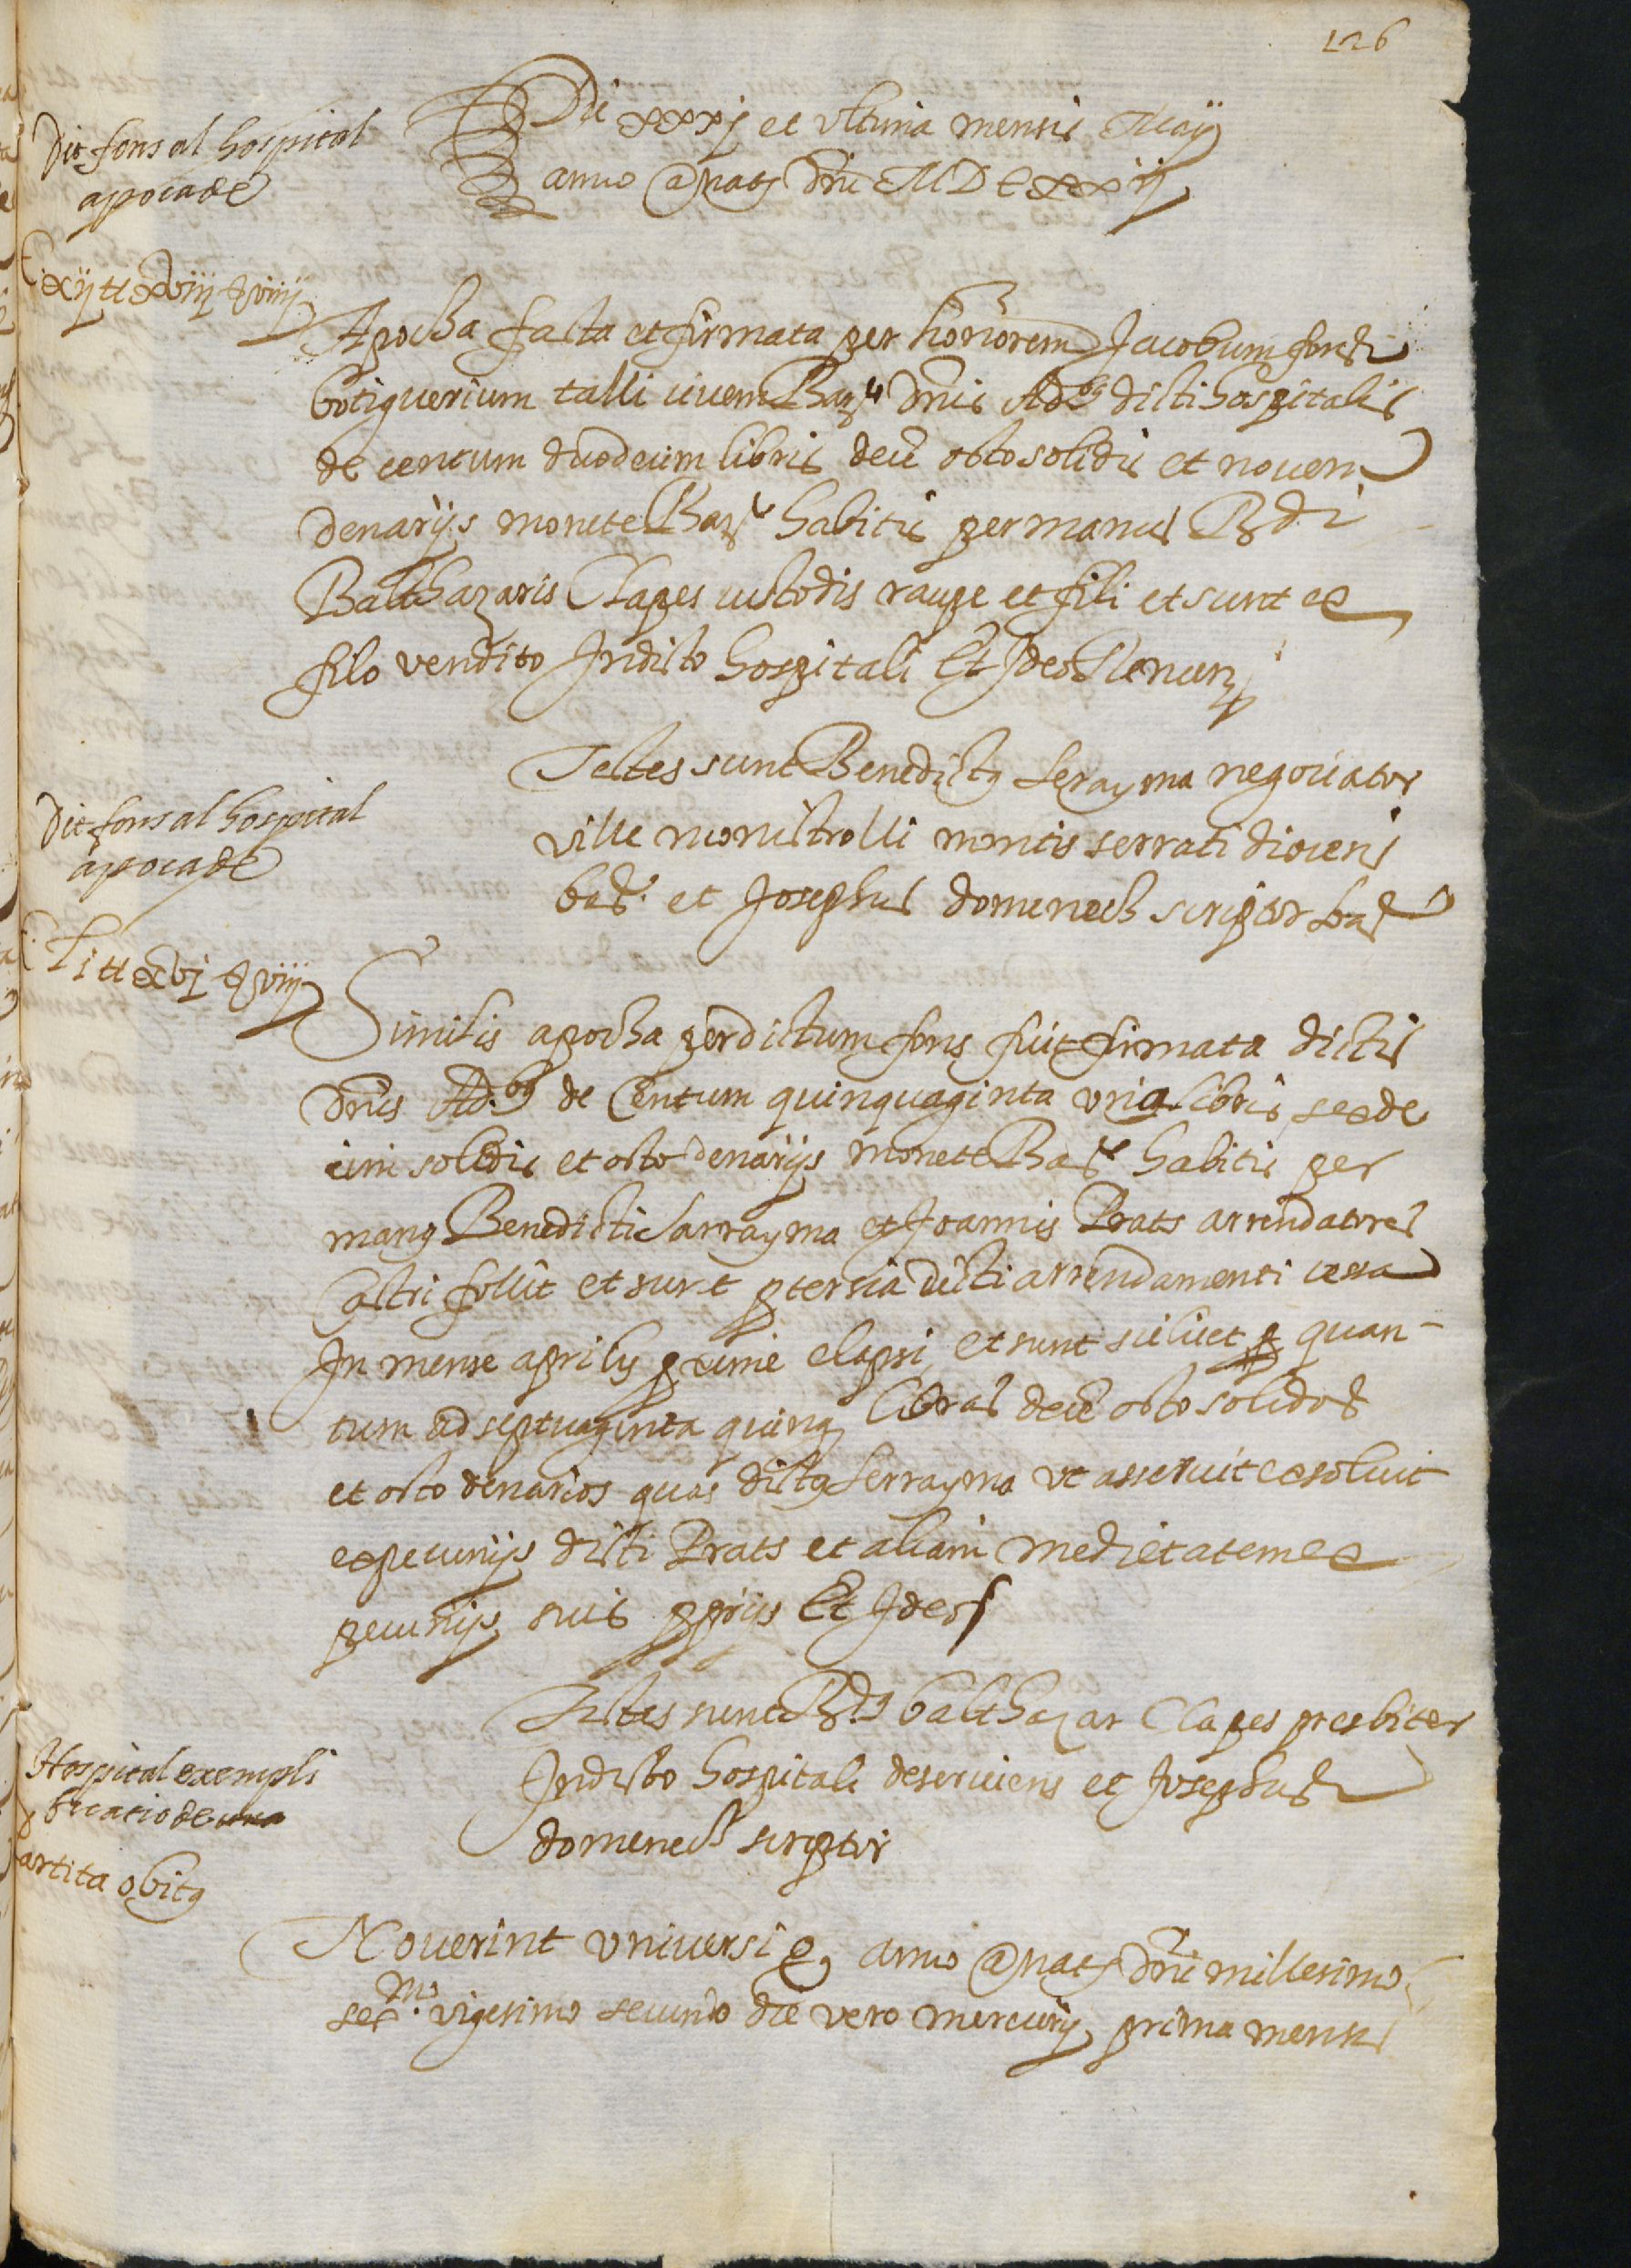 126
Dit fons al hospital
apoca de
Die xxxj et vltima mensis Maij
anno a nat. Dni MDCxxij
Cxij ll xviij s viiij
Apocha facta et firmata per honorem Jacobum fons
botiguerium talli civem Bar. dnis Ad.bus dicti hospitalis
de centum duodecim libris dece octo solidis et novem
denarijs monete Bar. habitis per manus Rdi
Balthazaris Clapes custodis raupe et fili et sunt ex
filo vendito In dicto hospitali Et Ideo Renun
Testes sunt Benedictus Serayma negociator
ville monistrolli montis serrati diocesis
bar. et Josephus domenech scriptor bar
Dit fons al hospital
apoca de
C Li ll xvj s viij
Similis apocha per dictum fons fuit firmata dictis
dnis Ad.bus de Centum quinquaginta una libris sexde
cim solidis et octo denarijs monete Bar. habitis per
manus Benedicti Sarrayma et Joannis Prats arrendatores
Castri follit et sunt p tercia dicti arrendamenti cessa
In mense aprilis p xime elapsi et sunt scilicet p quan-
tum ad septuaginta quinq libras dece octo solidos
et octo denarios quas dictus Serrayma ut asseruit exsoluit
ex pecunijs dicti Prats et aliam medietatem ex
pecunijs suis pprijs Et Ideo
Testes sunt Rdus balthazar Clapes presbiter
In dicto hospitali deserviens et Josephus
domenech scriptor
Hospital exempli
ficatio de una
partita obitus
Noverint universi q, anno a nat. Dni millesimo
sexmo. vigesimo secundo die vero mercurij prima mensis